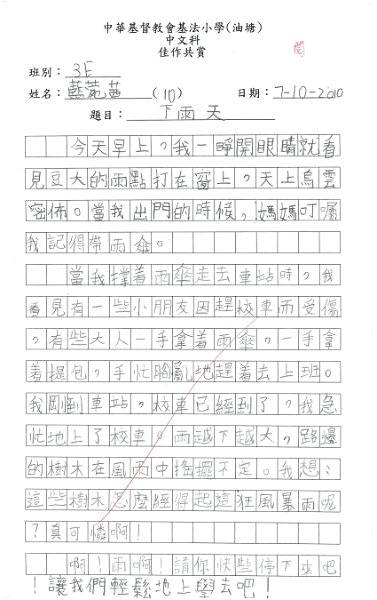 中華基督教會基法小學(油塘)
中文科
佳作共賞
閱
班別：3E
姓名：藍菀茜(10) 日期：7-10-2010
題目：下雨天
今天早上，我一睜開眼睛就看
見豆大的雨點打在窗上，天上烏雲
密佈。當我出門的時候，媽媽叮囑
我記得帶雨傘。
當我撐着雨傘走去車站時，我
看見有一些小朋友因趕校車而受傷
，有些大人一手拿着雨傘，一手拿
着提包，手忙腳亂地趕着去上班。
我剛到車站，校車已經到了，我急
忙地上了校車。雨越下越大，路邊
的樹木在風雨中搖擺不定。我想：
這些樹木怎麼經得起這狂風暴雨呢
？真可憐啊！
啊！雨啊！請你快些停下來吧
！讓我們輕鬆地上學去吧！